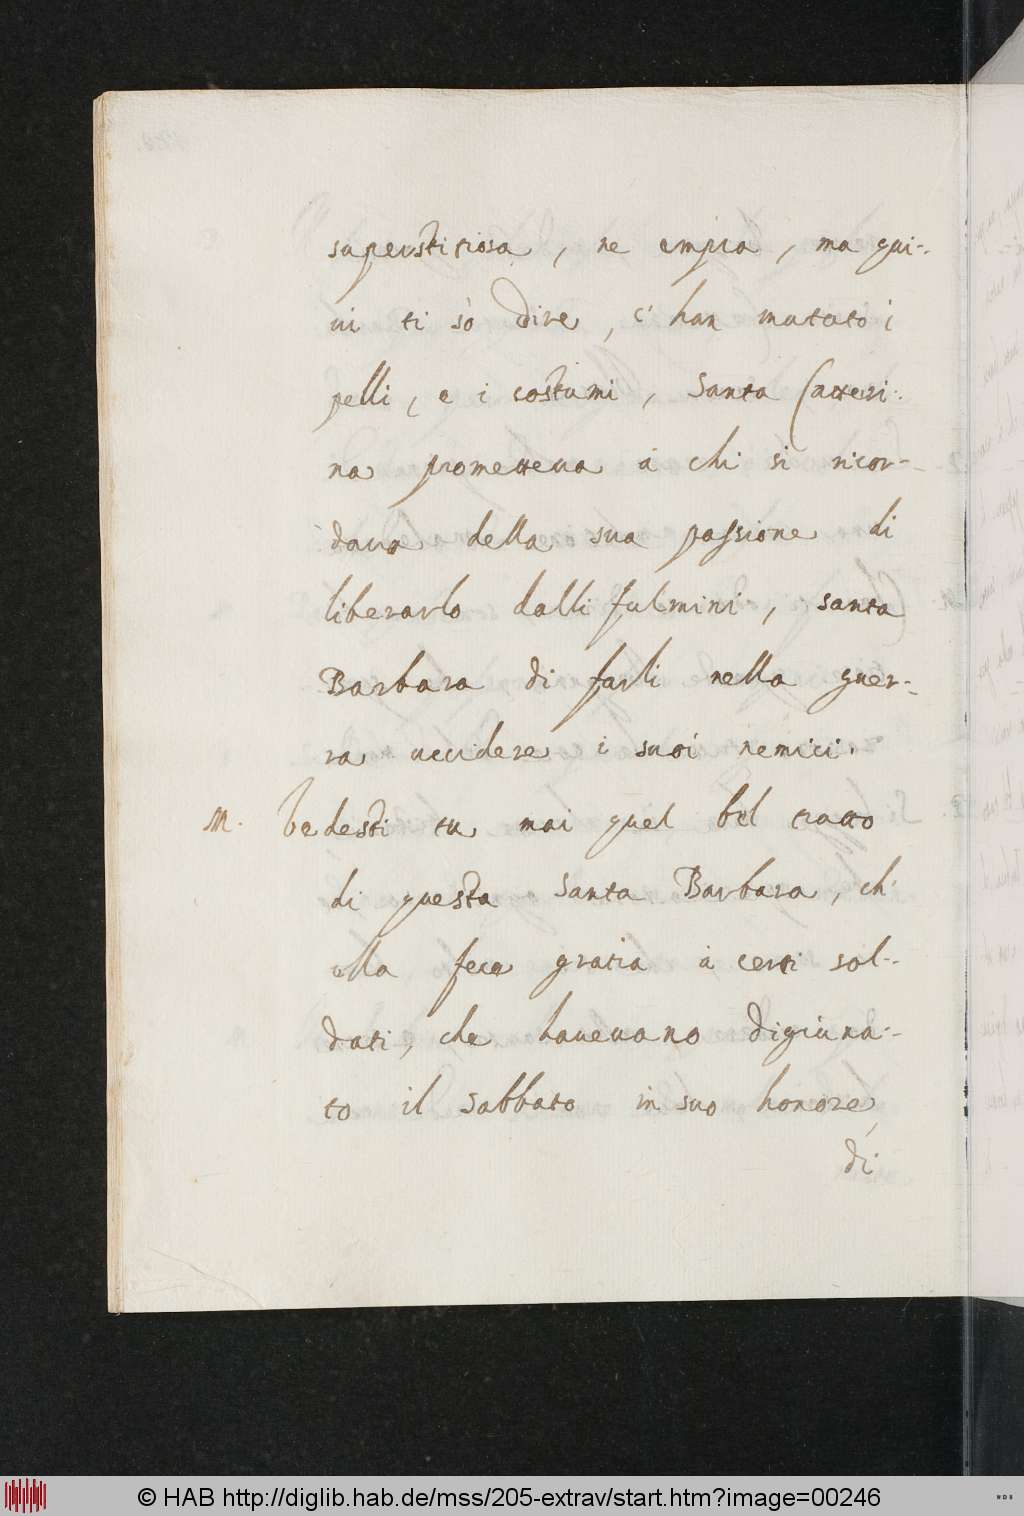 superstitiosa, ne empia, ma qui-
ui ti sò dire, c' han mutato i
pelli, e i costumi, Santa Catteri-
na prometteua à chi si ricor-
daua della sua passione di
liberarlo dalli fulmini, santa
Barbara di farli nella guer-
ra uccidere i suoi nemici.
M. Vedesti tu mai quel bel tratto
di questa Santa Barbara, ch'
ella fece gratia à certi sol-
dati, che haueuano digiuna-
to il sabbato in suo honore,
di
© HAB http://diglib.hab.de/mss/205-extrav/start.htm?image=00246